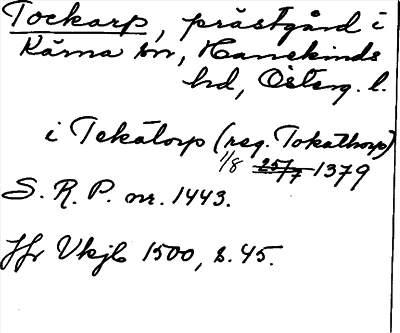 Tockarp, prästgård i
Kärna sn, Hanekinds
hd, Österg. l.
i Tekatorp (reg. Tokathorp)
1/8 25/7 1379
S. R. P. nr. 1443.
Jfr Vkjb 1500, s. 45.